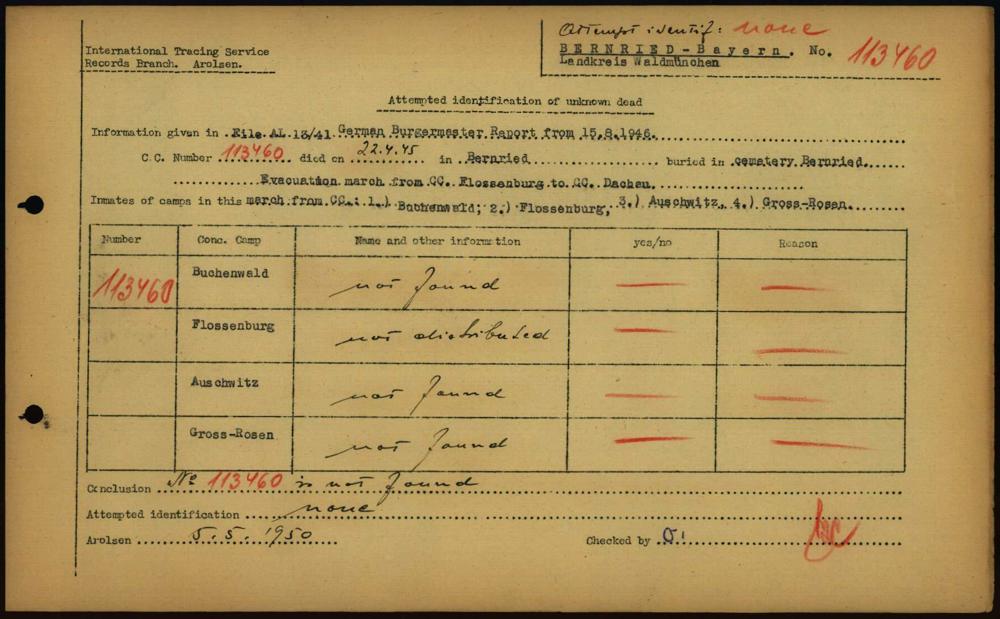 Attempt identif: none
International Tracing Service
Records Branch. Arolsen.
BERNRIED-Bayern. No. 113460
Landkreis Waldmünchen
Attempted identification of unknown dead
Information given in File AL 13/41 German Burgermaster Report from 15.8.1946.
C.C. Number 113460 died on 22.4.45 in Bernried buried in cematery Bernried
Evacuation march from CC. Flossenburg to CC. Dachau.
Inmates of camps in this march from CC.: 1.) Buchenwald; 2.) Flossenburg, 3.) Auschwitz, 4.) Gross-Rosen.
Number Conc. Camp Name and other information yes/no Reason
113460 Buchenwald not found
Flossenburg not distributed
Auschwitz not found
Gross-Rosen not found
Conclusion No 113460 is not found
Attempted identification none
Arolsen 5.5.1950 Checked by